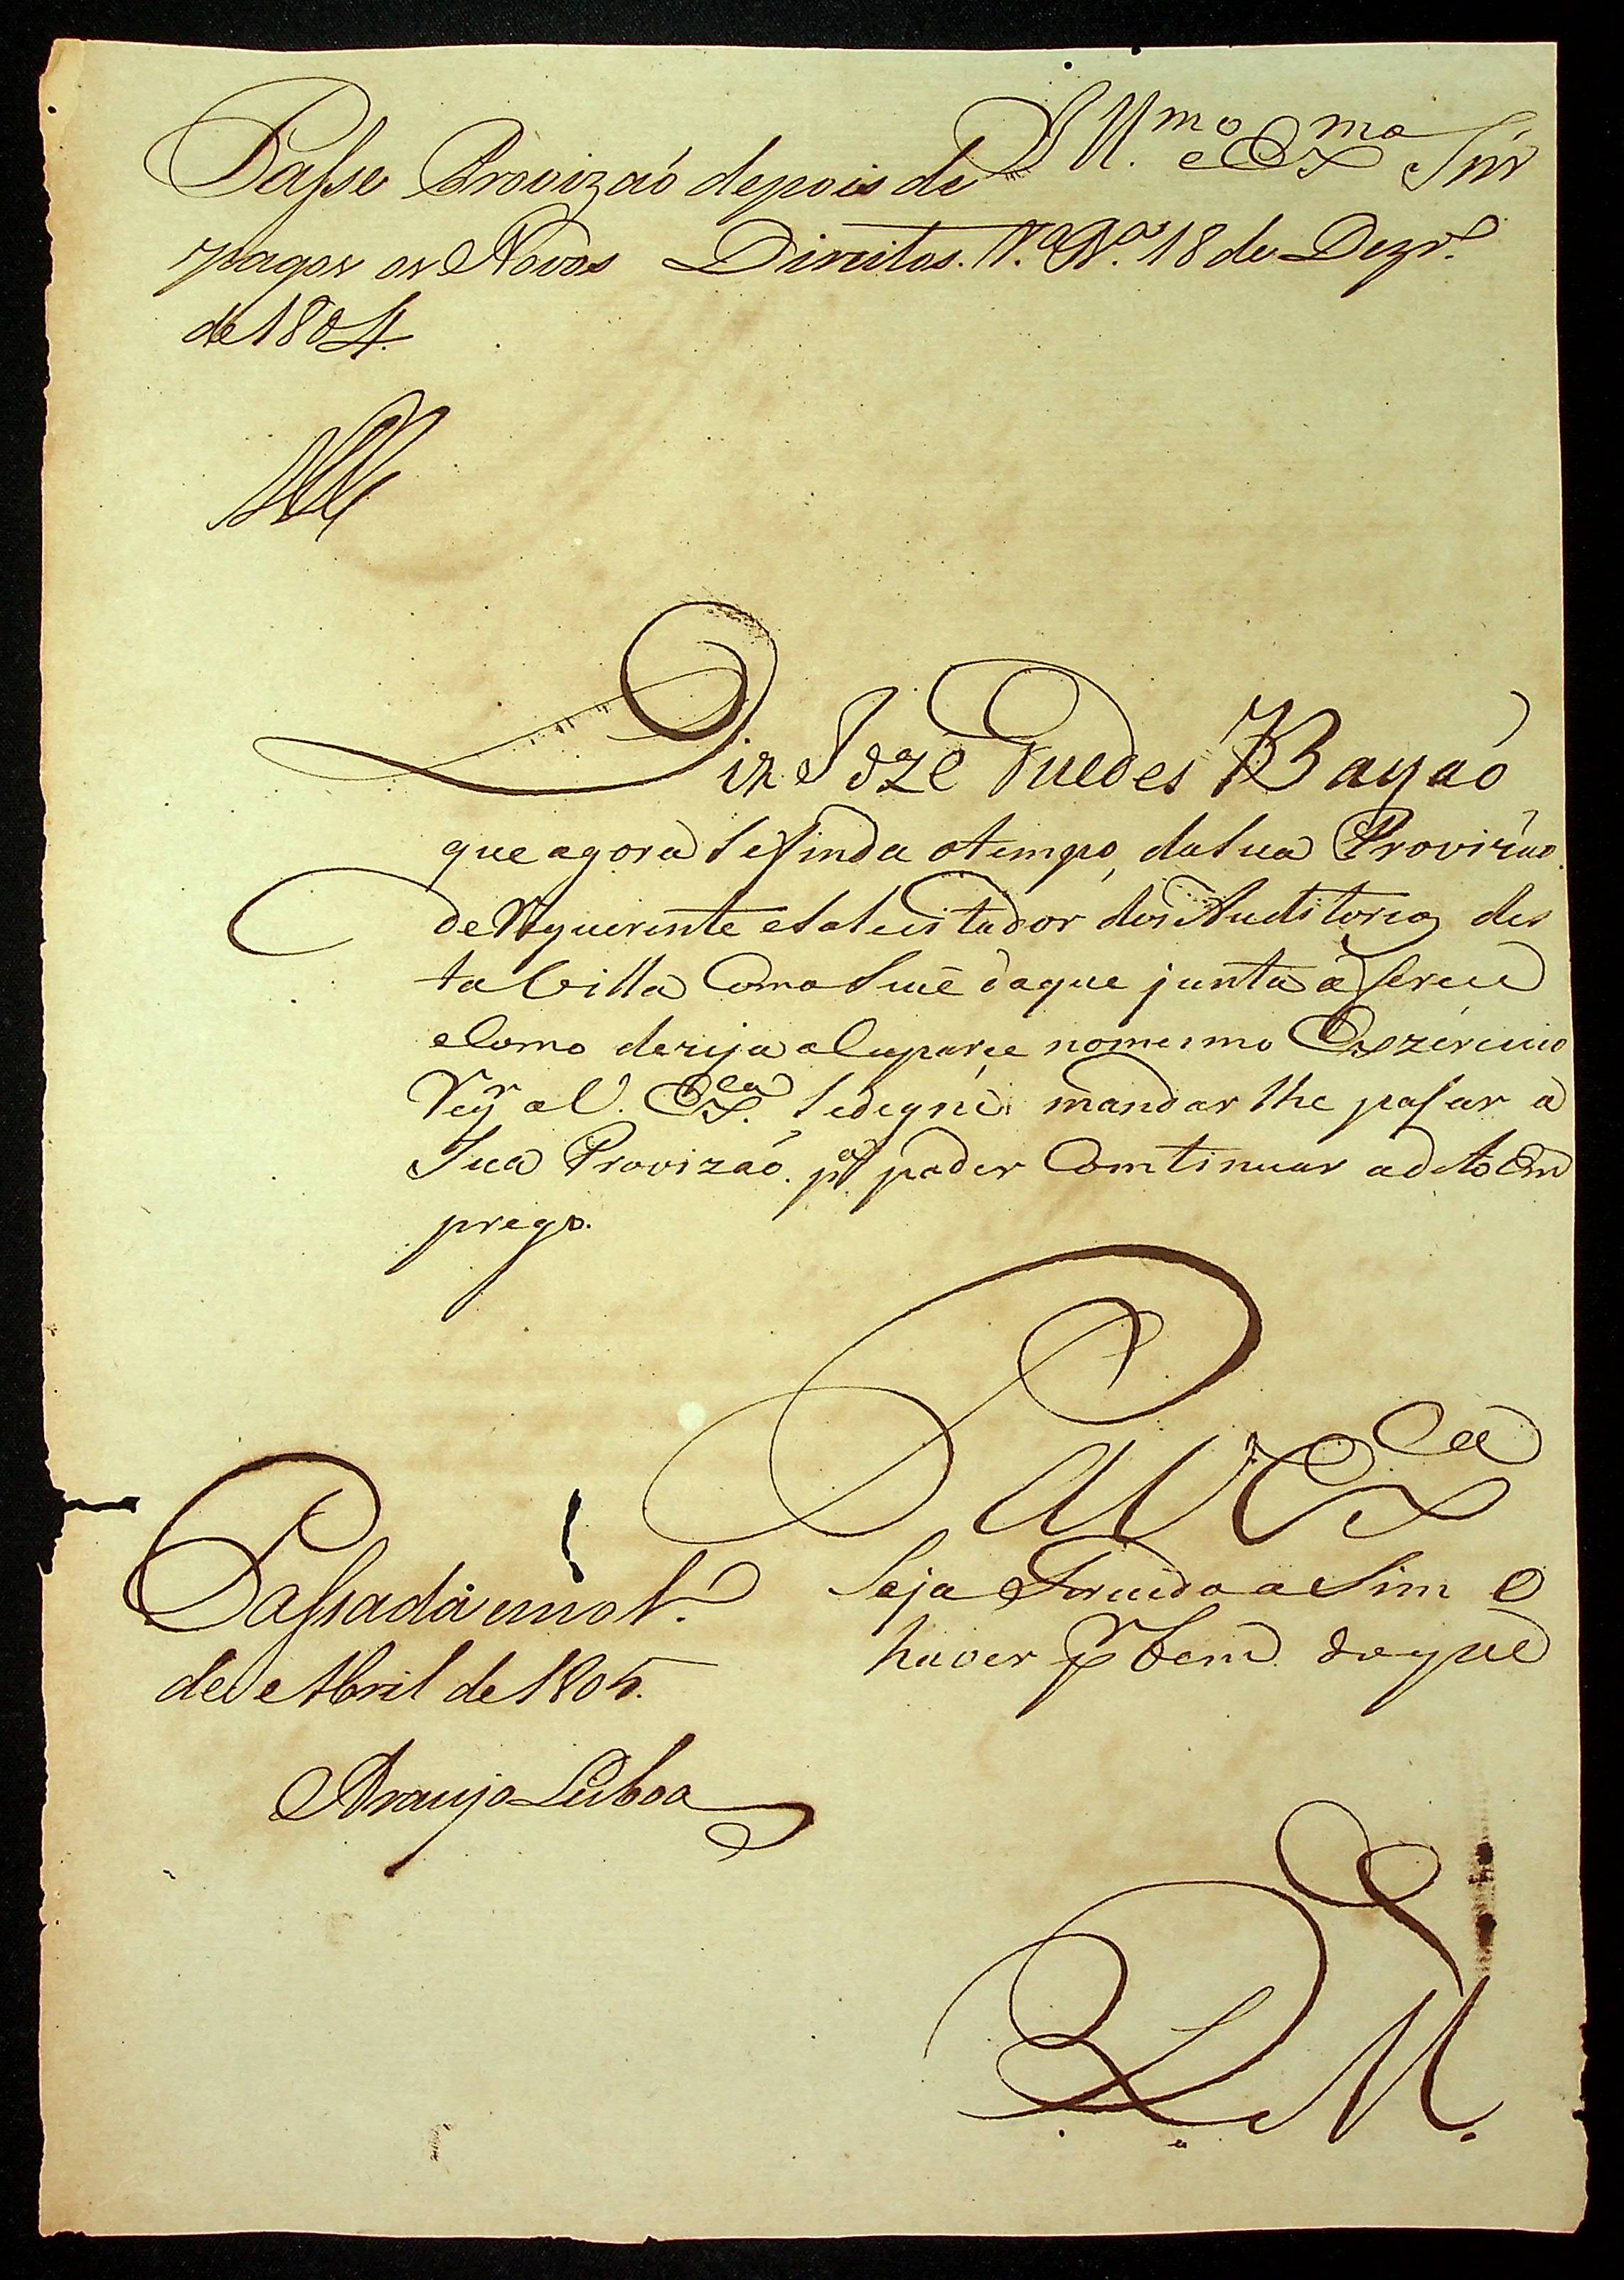 Ill.mo e Ex.mo Snr
Passe Provizaó depois de
pagos os Novos Direitos. V.a R.a 18 de Dezr.o
de 1804.
Diz Joze Guedes Bayaó
que agora se finda o tempo, da sua Provizao
de Requerente e soleuitador dos Auditorios des
ta Villa Como se vê da que junta a ferece
e Como dezeja a Cuparce no mesmo Exzercicio
a V. Ex.ca se degne mandar lhe pasar a
Sua Provizaó. p.a poder Comtinuar a dito Em
prego.
P a V Ex.ca
Seja Servido a sim o
haver pr bem do que
Passada em o 1.o
de Abril de 1805.
Araujo Lisboa
R M.